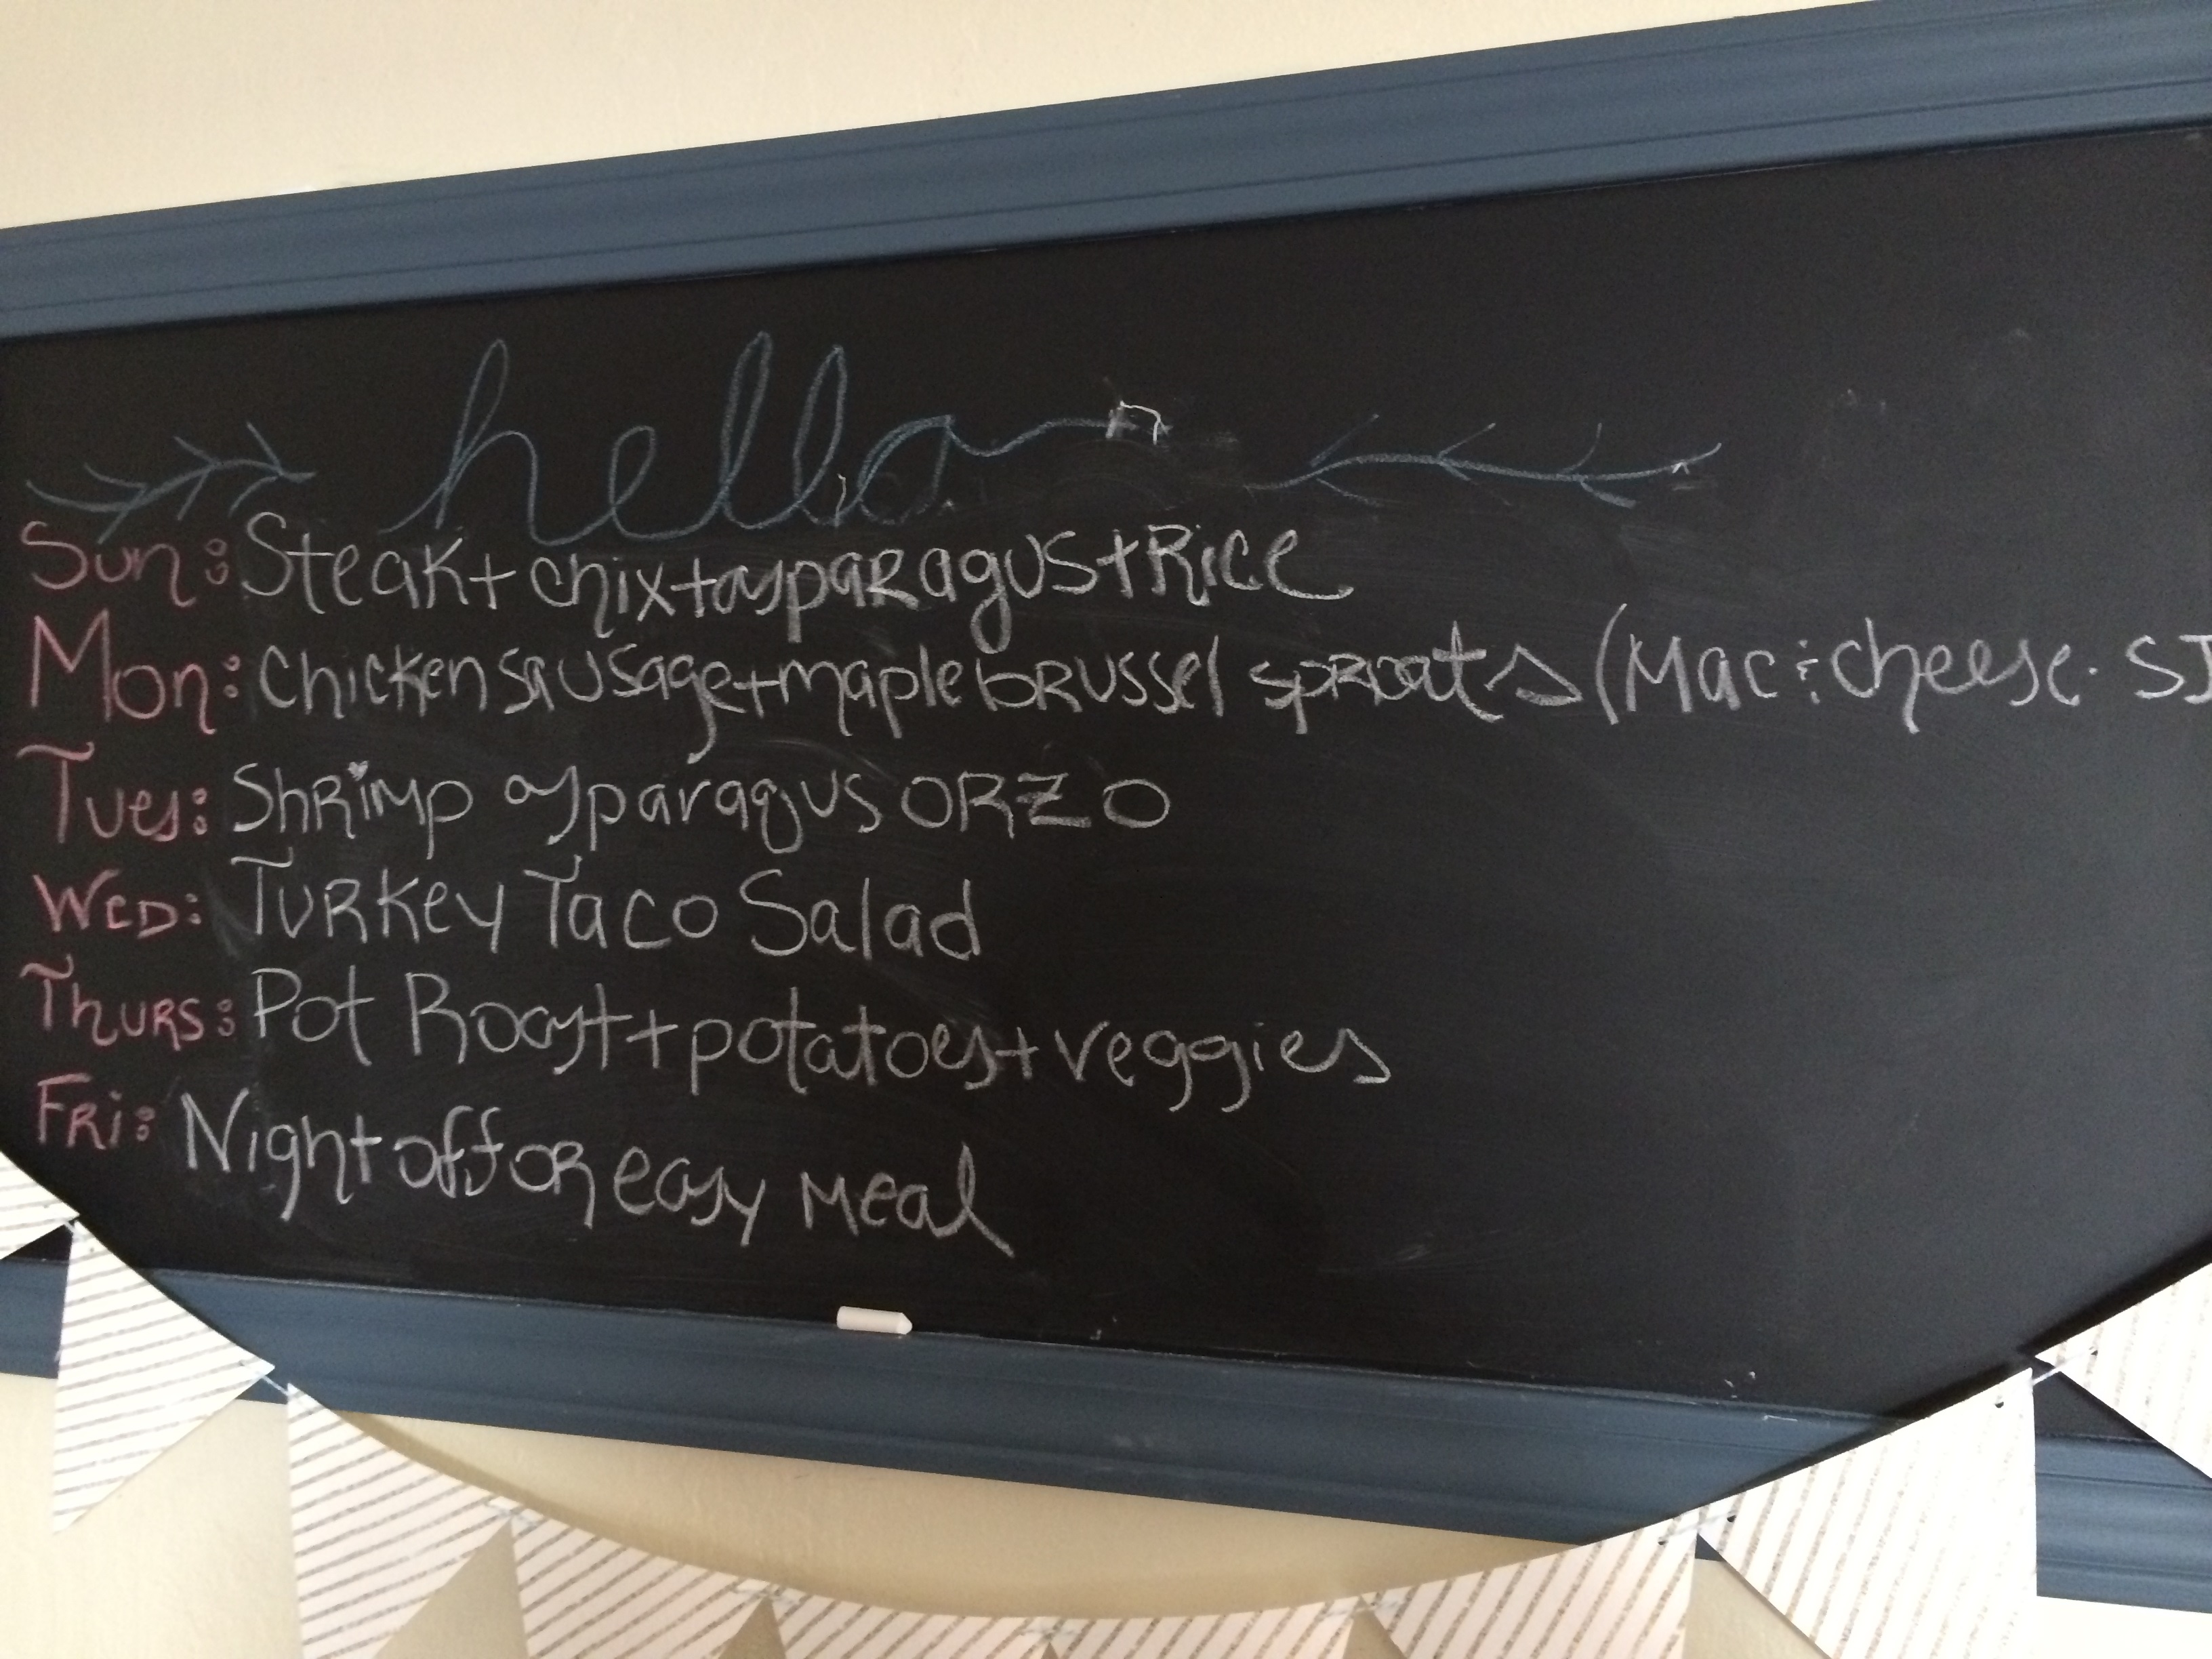 hello
Sun: Steak + chix + asparagus + Rice
Mon: Chicken sausage + maple brussel sproats (Mac & cheese. SJ
Tues: Shrimp asparagus ORZO
Wed: Turkey Taco Salad
Thurs: Pot Roast + potatoes + veggies
Fri: Night off or easy meal